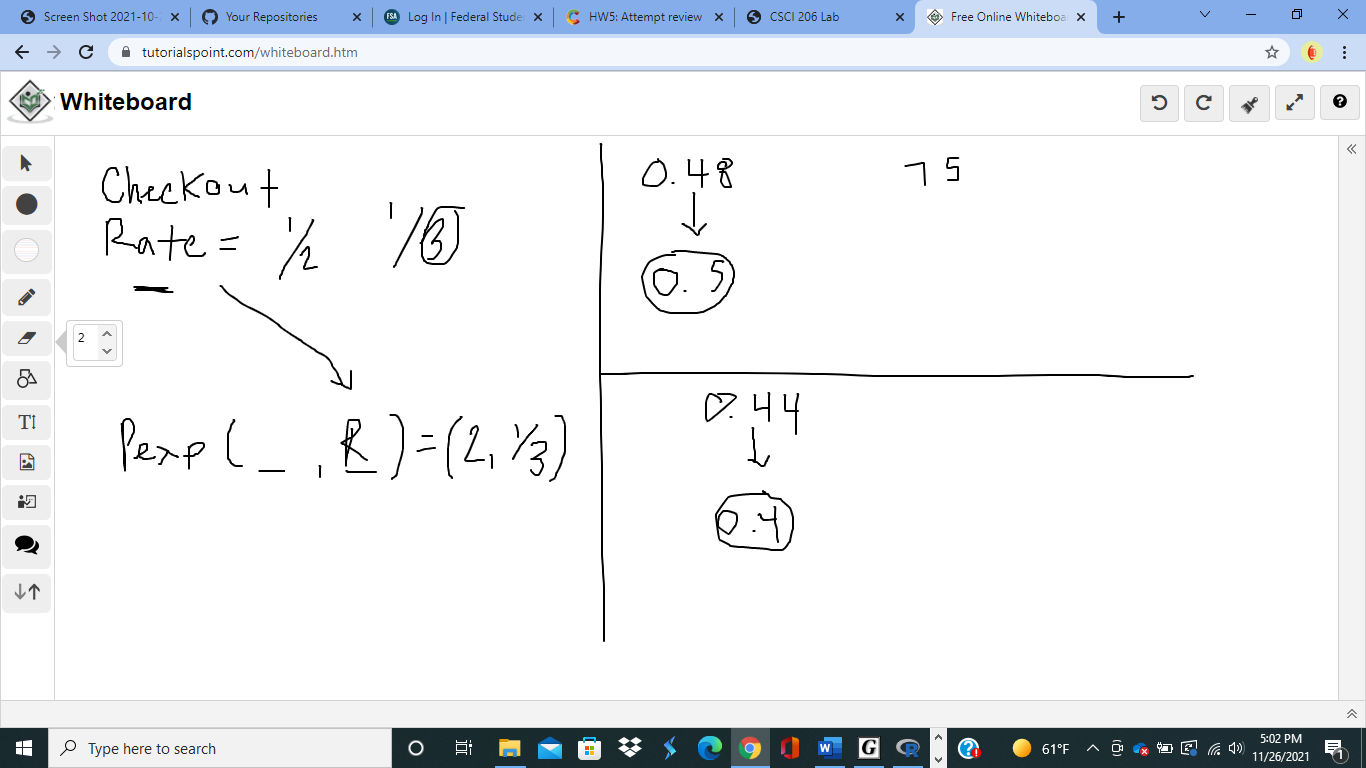 Screen Shot 2021-10-
Your Repositories
Log In | Federal Stude
HW5: Attempt review
CSCI 206 Lab
Free Online Whiteboa
tutorialspoint.com/whiteboard.htm
Whiteboard
2
Checkout
Rate = 1/2 1/3
Pexp ( _ , R ) = (2, 1/3)
0.48
0.5
75
0.44
0.4
Type here to search
61°F
5:02 PM
11/26/2021
1